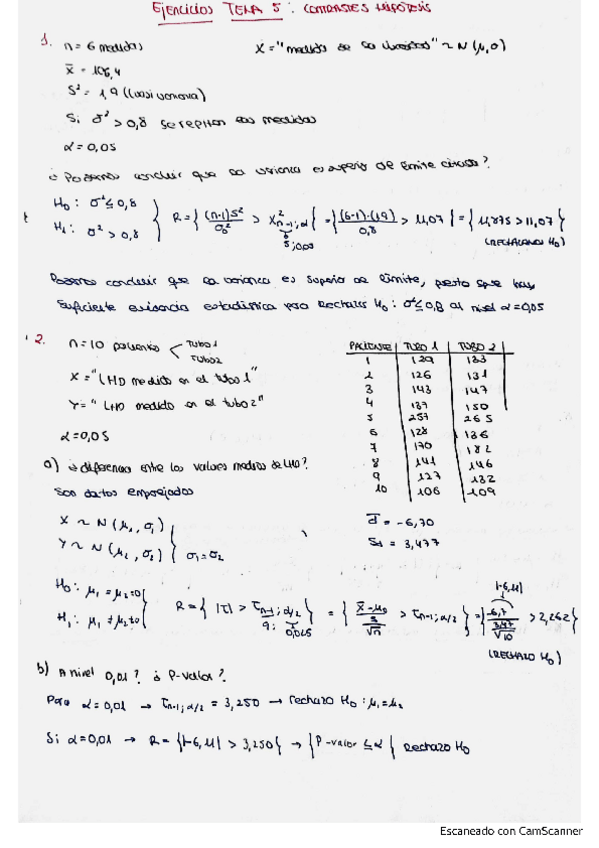 EJERCICIOS TEMA 5: CONTRASTES HIPÓTESIS
1. n = 6 medidas X = "medida de" ~ N(μ, σ)
x̄ = 106,4
S² = 1,9 (cuasivarianza)
Si σ² > 0,8 se repiten las medidas
α = 0,05
¿Podemos concluir que la varianza es superior al límite citado?
H₀: σ² ≤ 0,8
H₁: σ² > 0,8
R = { (n-1)S² / σ₀² > χ²ₙ₋₁;α } = { (6-1)·(1,9) / 0,8 > 11,07 } = { 11,875 > 11,07 }
5; 0,05
(RECHAZAMOS H₀)
Podemos concluir que la varianza es superior al límite, puesto que hay
suficiente evidencia estadística para rechazar H₀: σ² ≤ 0,8 al nivel α = 0,05
2. n = 10 pacientes TUBO 1
TUBO 2
X = "LHD medido en el tubo 1"
Y = "LHD medido en el tubo 2"
α = 0,05
PACIENTE TUBO 1 TUBO 2
1 129 133
2 126 131
3 143 147
4 137 150
5 257 265
6 128 136
7 170 182
8 141 146
9 127 132
10 106 109
a) ¿diferencia entre los valores medios de LHD?
Son datos emparejados
X ~ N(μ₁, σ₁)
Y ~ N(μ₂, σ₂)
σ₁ = σ₂
d̄ = -6,70
= 3,477
H₀: μ₁ = μ₂ = 0
H₁: μ₁ ≠ μ₂ ≠ 0
R = { |T| > tₙ₋₁;α/2 } = { x̄ - μ₀ / s/√n > tₙ₋₁;α/2 } = { -6,7 / 3,47/√10 > 2,262 }
9; 0,025
|-6,11|
(RECHAZO H₀)
b) A nivel 0,01? ¿P-valor?
Para α = 0,01 → tₙ₋₁;α/2 = 3,250 → rechazo H₀: μ₁ = μ₂
Si α = 0,01 → R = { |-6,11| > 3,250 } → { P-valor ≤ α } Rechazo H₀
Escaneado con CamScanner